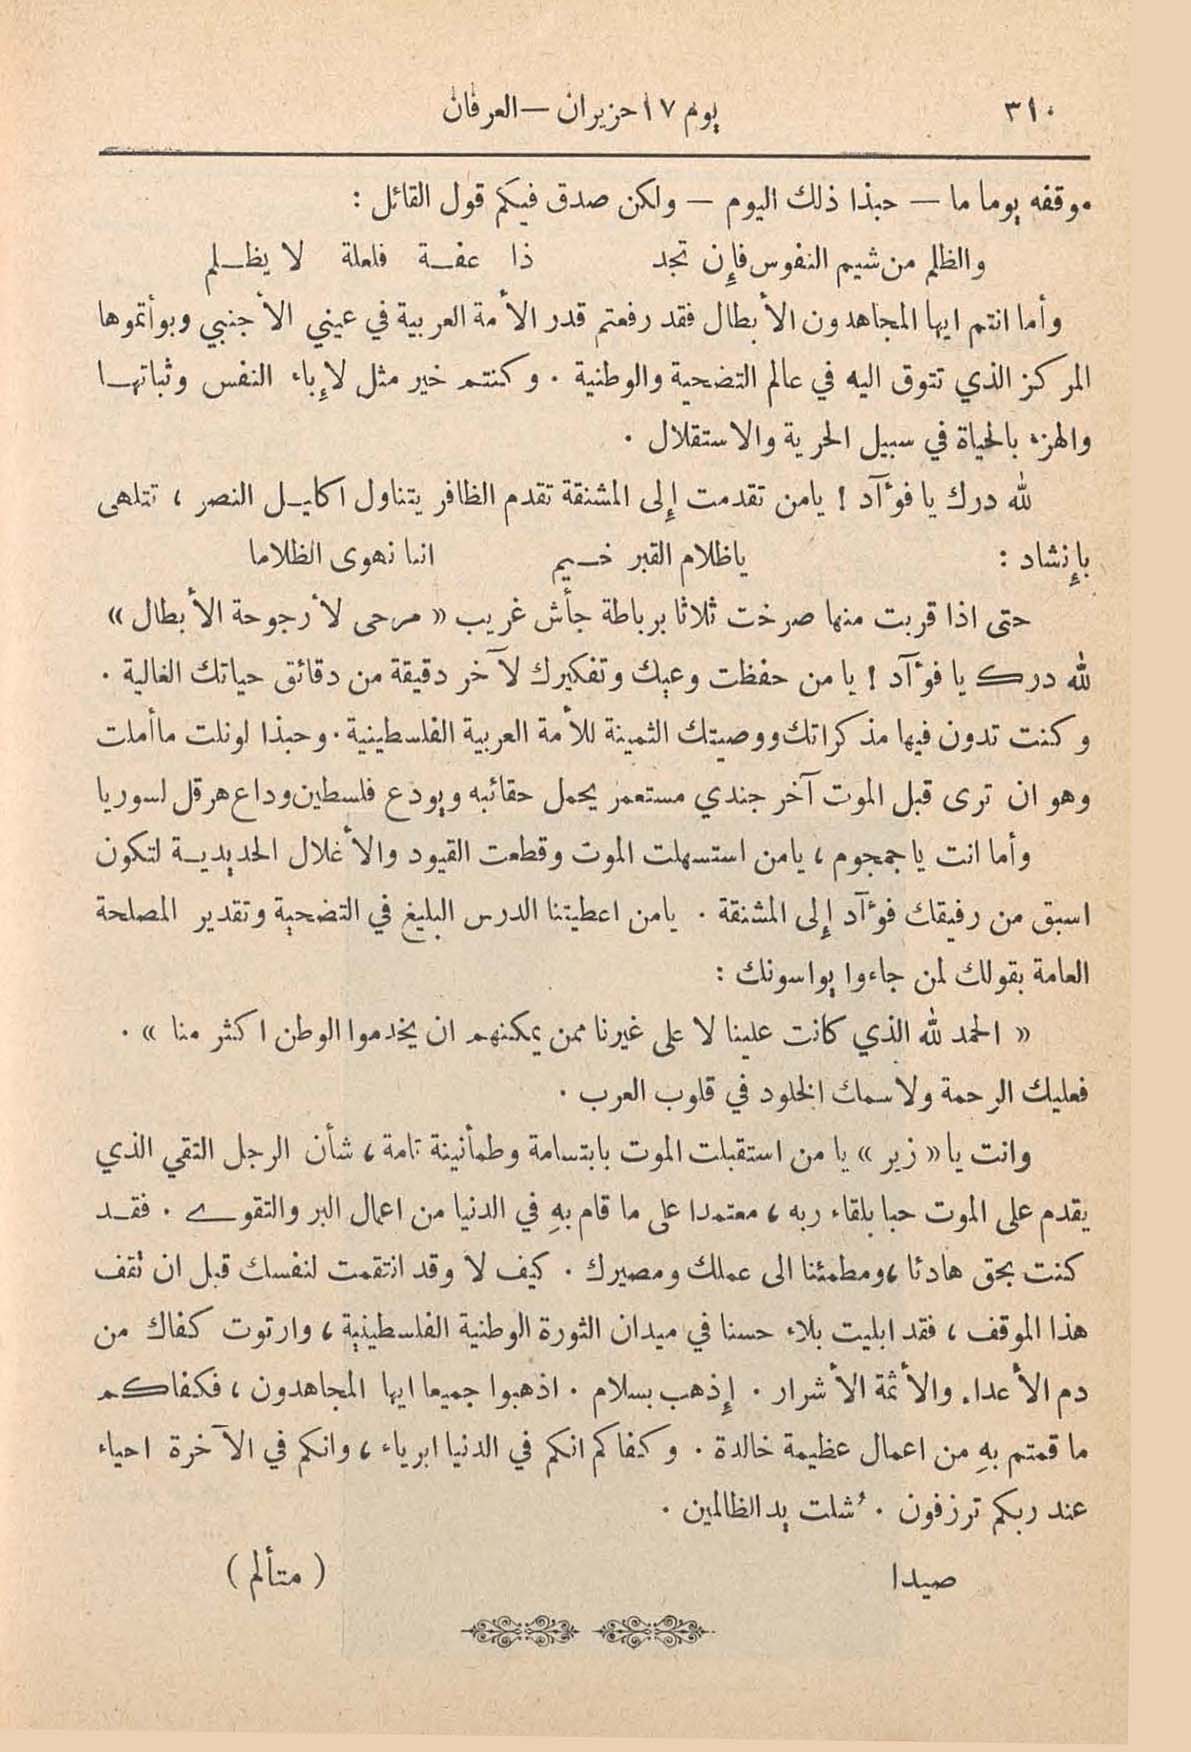 ٣١٠
يوم ١٧ حزيران — العرفان
موقفه يوما ما — حبذا ذلك اليوم — ولكن صدق فيكم قول القائل :
والظلم من شيم النفوس فإن تجد ذا عفة فلعلة لا يظلم
وأما انتم ايها المجاهدون الأبطال فقد رفعتم قدر الأمة العربية في عيني الأجنبي وبوأتموها
المركز الذي تتوق اليه في عالم التضحية والوطنية . وكنتم خير مثل لإباء النفس وثباتها
والهزء بالحياة في سبيل الحرية والاستقلال .
لله درك يا فوءآد ! يامن تقدمت إلى المشنقة تقدم الظافر يتناول اكليل النصر ، تتلهى
بإنشاد : ياظلام القبر خيم اننا نهوى الظلاما
حتى اذا قربت منها صرخت ثلاثا برباطة جأش غريب « مرحى لأرجوحة الأبطال »
لله درك يا فوءآد ! يا من حفظت وعيك وتفكيرك لآخر دقيقة من دقائق حياتك الغالية .
وكنت تدون فيها مذكراتك ووصيتك الثمينة للأمة العربية الفلسطينية . وحبذا لونلت ماأملت
وهو ان ترى قبل الموت آخر جندي مستعمر يحمل حقائبه ويودع فلسطين وداع هرقل لسوريا
وأما انت يا جمجوم ، يامن استسهلت الموت وقطعت القيود والأغلال الحديدية لتكون
اسبق من رفيقك فوءآد إلى المشنقة . يامن اعطيتنا الدرس البليغ في التضحية وتقدير المصلحة
العامة بقولك لمن جاءوا يواسونك :
« الحمد لله الذي كانت علينا لا على غيرنا ممن يمكنهم ان يخدموا الوطن اكثر منا » .
فعليك الرحمة ولاسمك الخلود في قلوب العرب .
وانت يا « زير » يا من استقبلت الموت بابتسامة وطمأنينة تامة ، شأن الرجل التقي الذي
يقدم على الموت حبا بلقاء ربه ، معتمدا على ما قام بهِ في الدنيا من اعمال البر والتقوى . فقد
كنت بحق هادئا ، ومطمئنا الى عملك ومصيرك . كيف لا وقد انتقمت لنفسك قبل ان تقف
هذا الموقف ، فقد ابليت بلاء حسنا في ميدان الثورة الوطنية الفلسطينية ، وارتوت كفاك من
دم الأعداء والأثمة الأشرار . إذهب بسلام . اذهبوا جميعا ايها المجاهدون ، فكفاكم
ما قمتم بهِ من اعمال عظيمة خالدة . وكفاكم انكم في الدنيا ابرياء ، وانكم في الآخرة احياء
عند ربكم ترزقون . ُشلت يد الظالمين .
صيدا ( متألم )